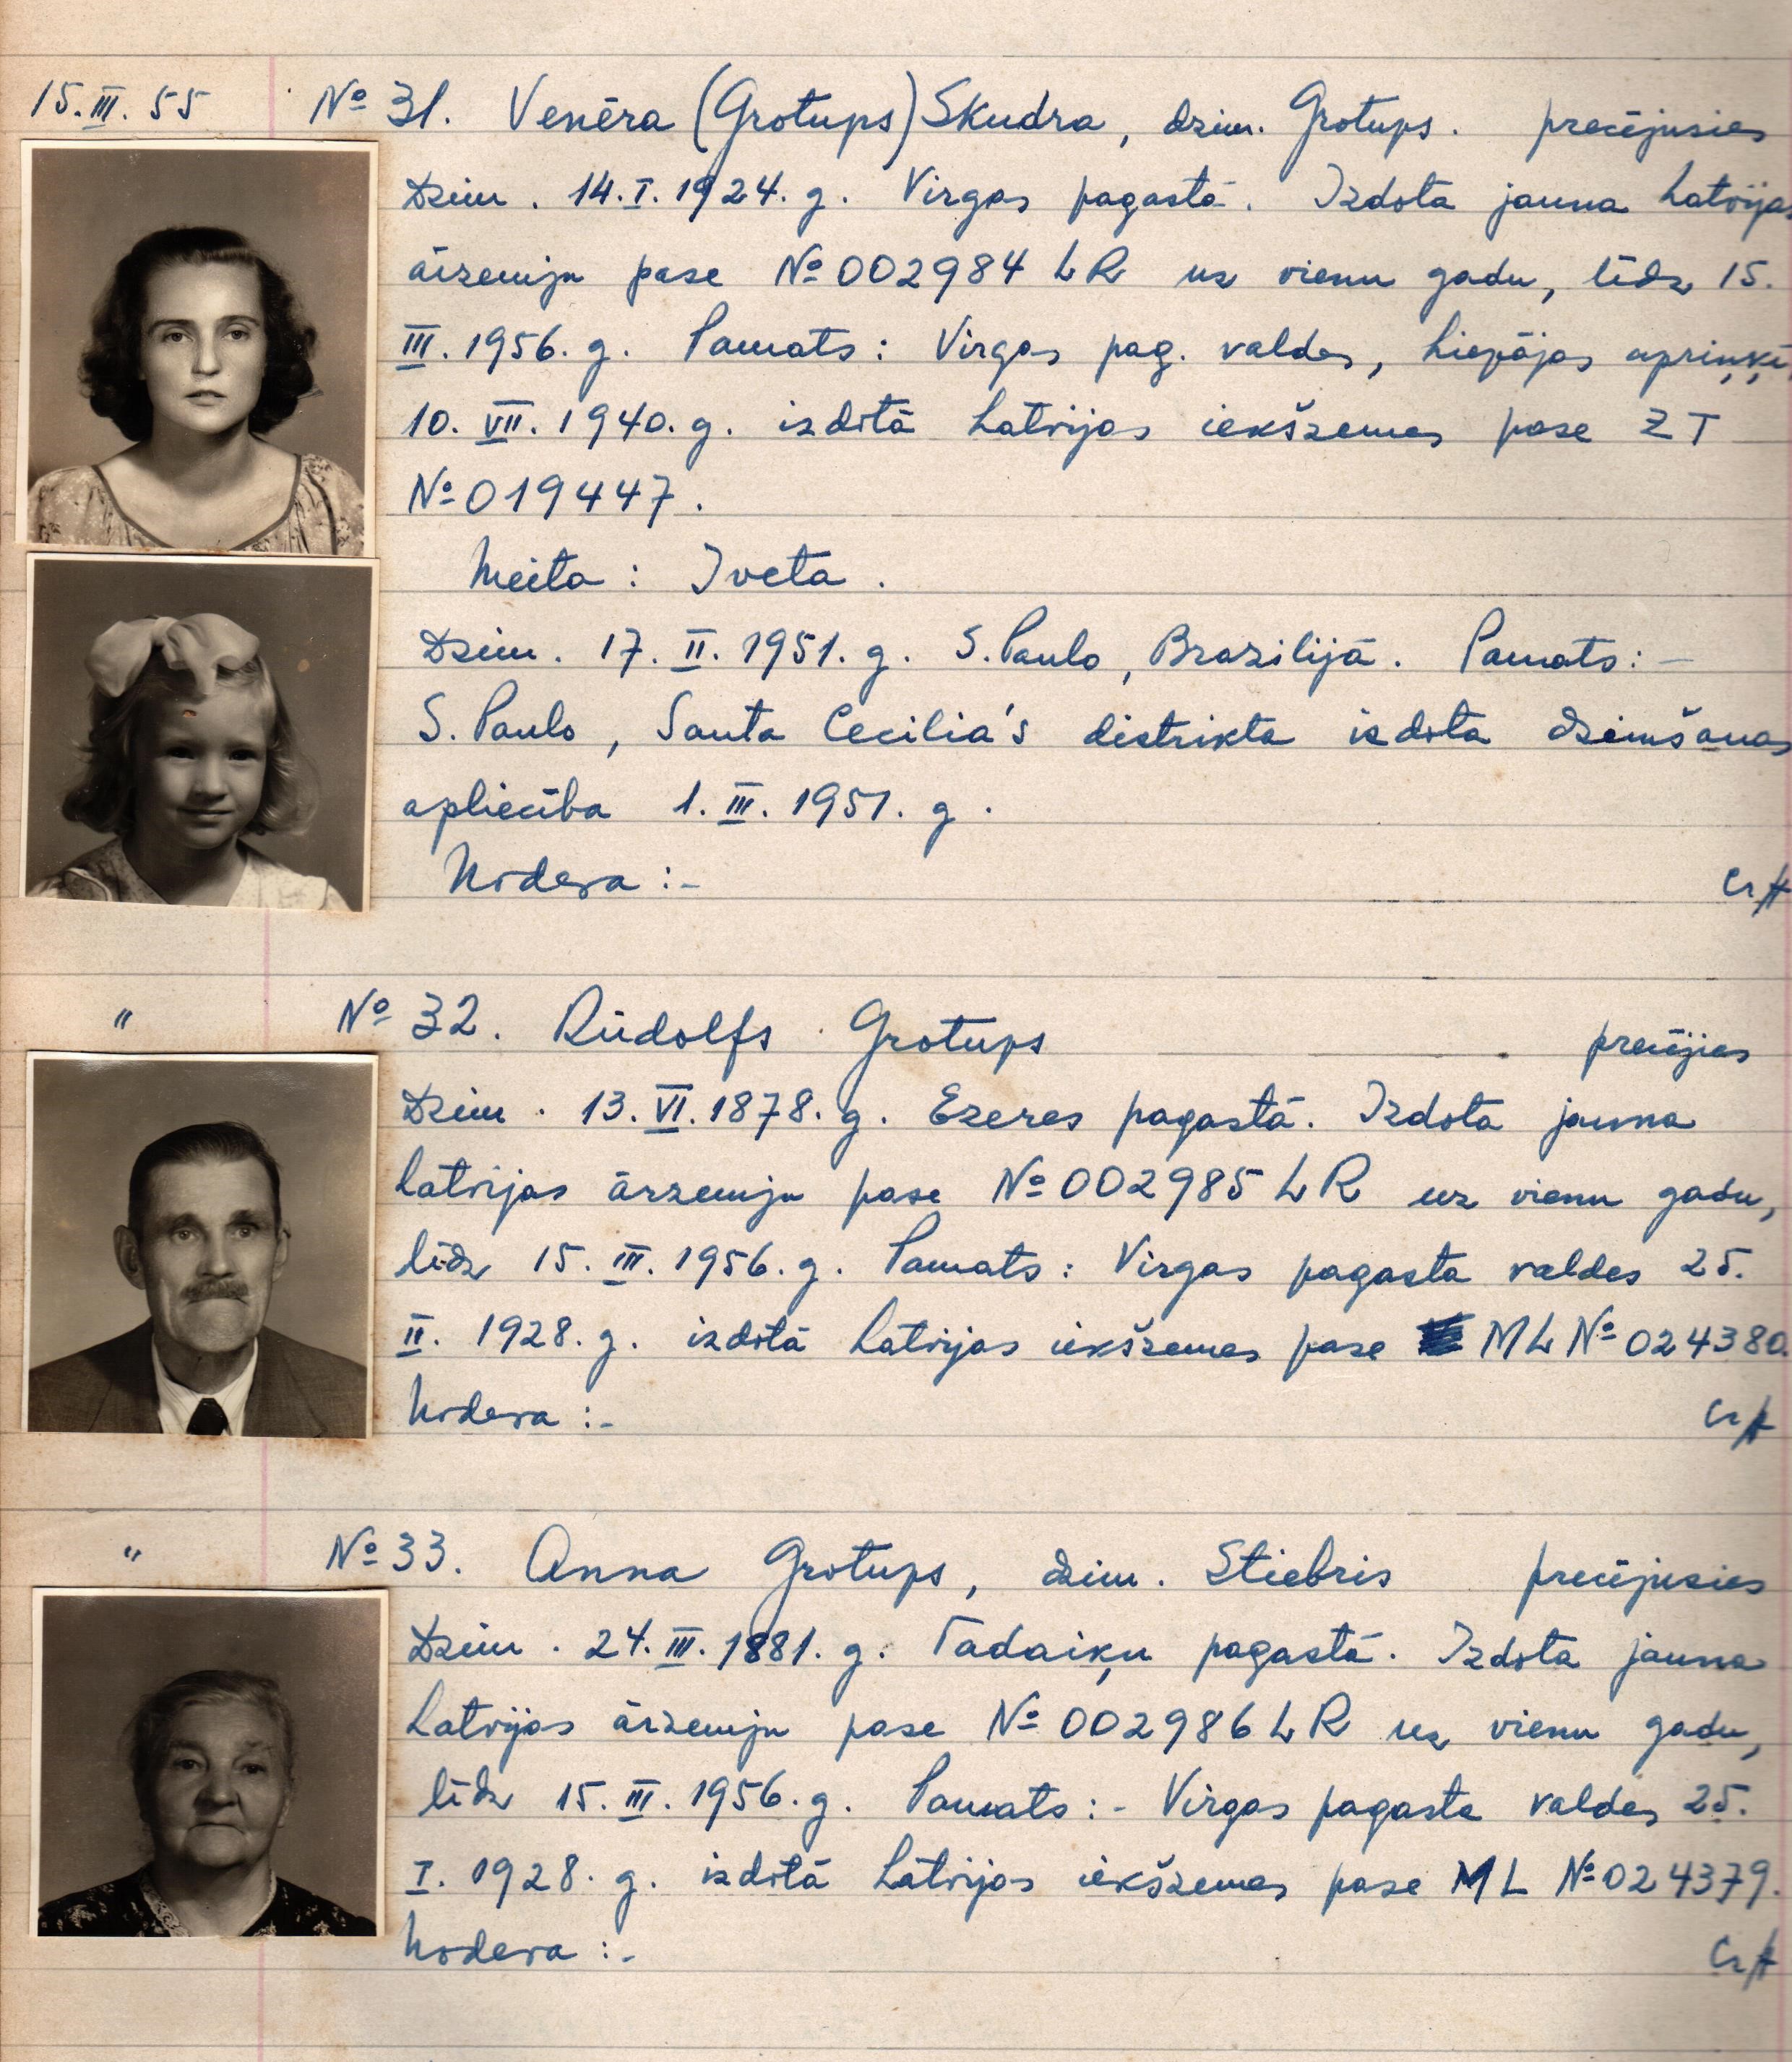 15.III.55 № 31. Venēra (Grotups) Skudra, dzim. Grotups. precējusies
Dzim. 14.I.1924.g. Virgas pagastā. Izdota jauna Latvijas
ārzemju pase № 002984 LR uz vienu gadu, līdz 15.
III.1956.g. Pamats: Virgas pag. valdes, Liepājas apriņķī
10.VII.1940.g. izdotā Latvijas iekšzemes pase ZT
№ 019447.
Meita: Iveta.
Dzim. 17.II.1951.g. S.Paulo, Brazilijā. Pamats:-
S.Paulo, Santa Cecilia's distrikta izdota dzimšanas
apliecība 1.III.1951.g.
Nodeva:-
" № 32. Rūdolfs Grotups precējies
Dzim. 13.VI.1878.g. Ezeres pagastā. Izdota jauna
Latvijas ārzemju pase № 002985 LR uz vienu gadu,
līdz 15.III.1956.g. Pamats: Virgas pagasta valdes 25.
II.1928.g. izdotā Latvijas iekšzemes pase ML № 024380.
Nodeva:-
" № 33. Anna Grotups, dzim. Stiebris precējusies
Dzim. 24.III.1881.g. Tadaiķu pagastā. Izdota jauna
Latvijas ārzemju pase № 002986 LR uz vienu gadu,
līdz 15.III.1956.g. Pamats:- Virgas pagasta valdes 25.
I.1928.g. izdotā Latvijas iekšzemes pase ML № 024379.
Nodeva:-